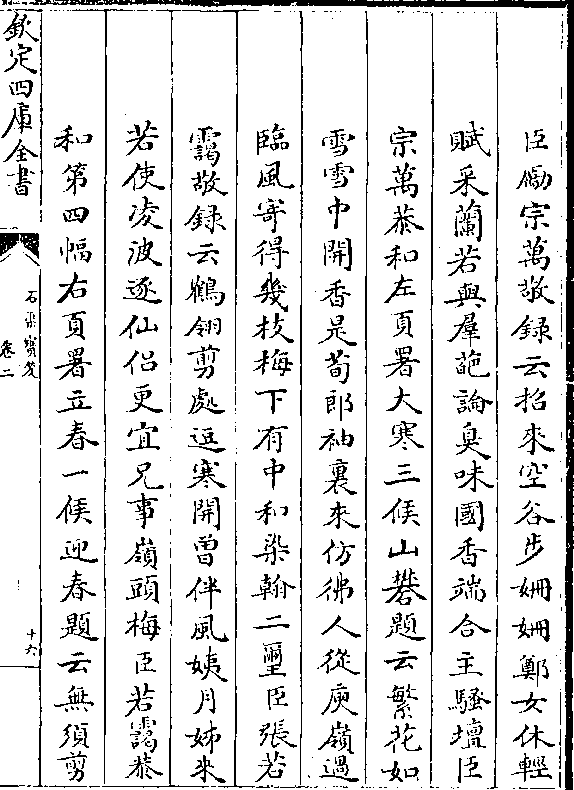 臣勵宗萬敬録云招來空谷步姍姍鄭女休輕
賦采蘭若與羣葩論臭味國香端合主騷壇臣
宗萬恭和左頁署大寒三候山礬題云繁花如
雪雪中開香是荀郎袖裏來仿彿人從庾嶺過
臨風寄得幾枝梅下有中和染翰二璽臣張若
靄敬録云鶴翎剪處逗寒開曾伴風姨月姊來
若使凌波逐仙侣更宜兄事嶺頭梅臣若靄恭
和第四幅右頁署立春一候迎春題云無須剪
欽定四庫全書
石渠寳笈
卷二
十六